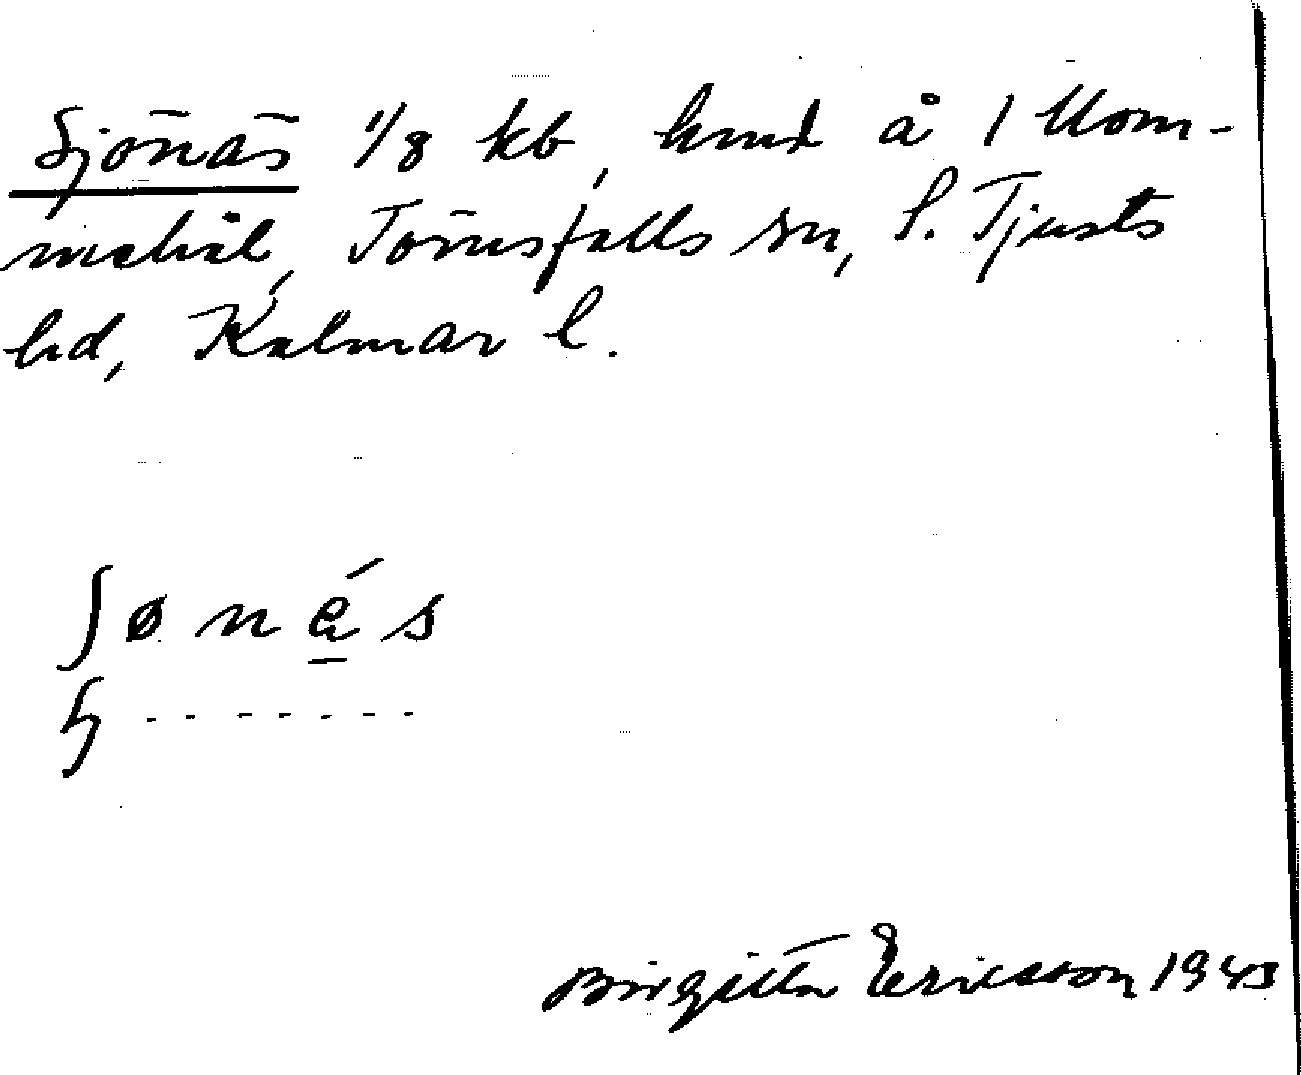 Sjönäs 1/8 kb, hmd å 1 Mom-
mehål, Törnsfalls sn, S. Tjusts
hd, Kalmar l.
ʃ ø n é s
ɧ - - - - - - -
Birgitta Ericsson 1943